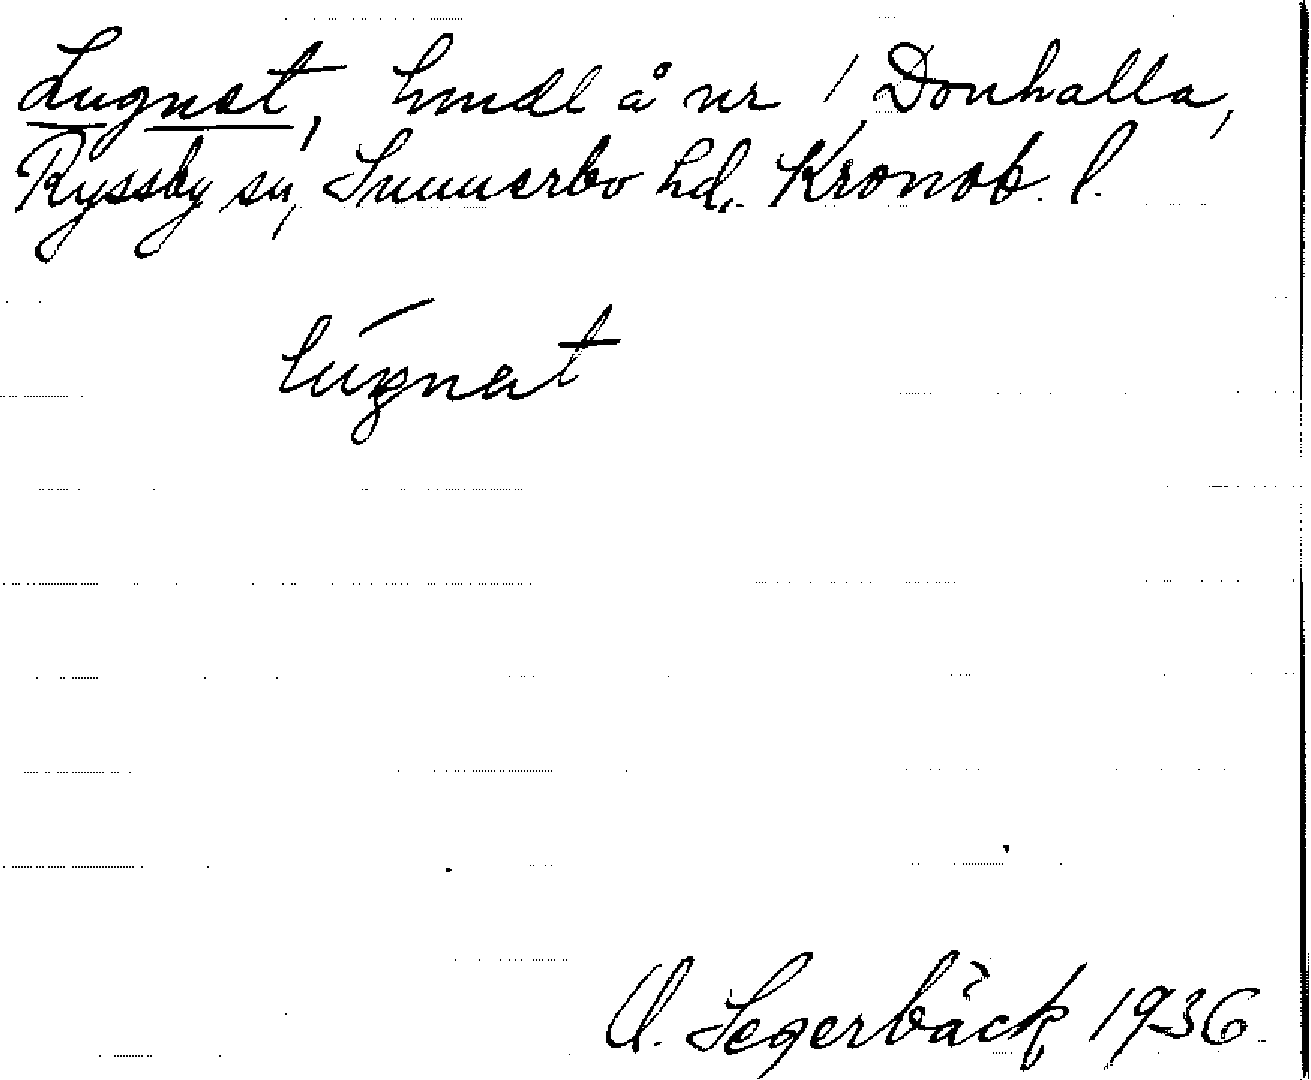 Lugnet, hmdl å nr 1 Donhalla,
Ryssby sn, Sunnerbo hd. Kronob. l.
lúgnat
O. Segerbäck 1936.